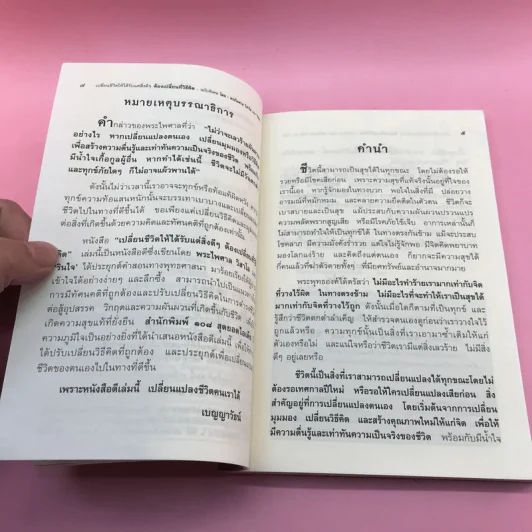 ๔ เปลี่ยนชีวิตให้ได้รับแต่สิ่งดีๆ ต้องเปลี่ยนที่วิธีคิด
หมายเหตุบรรณาธิการ
คำกล่าวของพระไพศาลที่ว่า "ไม่ว่าจะเลวร้าย
อย่างไร หากเปลี่ยนแปลงตนเอง เปลี่ยนมุมมอง
เพื่อสร้างความตื่นรู้และเท่าทันความเป็นจริงของชีวิต
มีน้ำใจเกื้อกูลผู้อื่น หากทำได้เช่นนี้ ชีวิตจะไม่มี
และทุกข์ภัยใดๆ ก็ไม่อาจแผ้วพานได้"
ดังนั้นไม่ว่าเวลานี้เราอาจจะทุกข์หรือท้อแท้ผิดหวัง
ทุกข์ความท้อแสนหนักนั้นจะบรรเทาเบาบางและ
ชีวิตไปในทางที่ดีขึ้นได้ ขอเพียงแค่เปลี่ยนวิธี
ต่อสิ่งที่เกิดขึ้นด้วยความคิดและทัศนคติที่ถูกต้องเท่านั้น
หนังสือ "เปลี่ยนชีวิตให้ได้รับแต่สิ่งดีๆ ต้องเปลี่ยนที่วิธี
คิด" เล่มนี้เป็นหนังสือดีที่เขียนโดย พระไพศาล วิสาโล
ได้ประยุกต์คำสอนทางพุทธศาสนา มาร้อยเรียงให้
เข้าใจได้อย่างง่ายๆ และลึกซึ้ง สามารถนำไปเป็น
การมีทัศนคติที่ถูกต้องและปรับเปลี่ยนวิธีคิดในการ
ต่อสู้อุปสรรค วิกฤตและความผันผวนที่เกิดขึ้นกับชีวิต
เกิดความสุขแท้ที่ยั่งยืน สำนักพิมพ์ ๑๐๘ สุดยอด
ความภูมิใจเป็นอย่างยิ่งที่ได้นำเสนอหนังสือเล่มนี้
ได้ปรับเปลี่ยนวิธีคิดที่ถูกต้อง และประยุกต์เพื่อเปลี่ยน
ชีวิตของตนเองไปในทางที่ดีขึ้น
เพราะหนังสือดีเล่มนี้ เปลี่ยนแปลงชีวิตคนเราได้
เบญญาวัธน์
๕
คำนำ
ชีวิตนี้สามารถเป็นสุขได้ในทุกขณะ โดยไม่ต้องรอให้
รวยหรือมีโชคเสียก่อน เพราะความสุขที่แท้จริงนั้นอยู่ที่ใจของ
เรานี้เอง หากรู้จักมองในทางบวก พอใจในสิ่งที่มี ปล่อยวาง
อารมณ์ที่หมักหมม และคลายความยึดติดในตัวตน ชีวิตก็จะ
เบาสบายและเป็นสุข แม้ประสบกับความผันผวนปรวนแปร
ความพลัดพรากสูญเสีย หรือมีโรคภัยไข้เจ็บ อาการเหล่านั้นก็
ไม่สามารถทำให้เป็นทุกข์ได้ ในทางตรงกันข้าม แม้จะประสบ
โชคลาภ มีความมั่งคั่งร่ำรวย แต่ใจไม่รู้จักพอ มีจิตคิดพยาบาท
มองโลกแง่ร้าย และคิดถึงแต่ตนเอง ก็ยากจะมีความสุขได้
กี่คนแล้วที่ฆ่าตัวตายทั้งๆ ที่มียศทรัพย์และอำนาจมากมาย
พระพุทธองค์ได้ตรัสว่า ไม่มีอะไรทำร้ายเรามากเท่ากับจิต
ที่วางไว้ผิด ในทางตรงข้าม ไม่มีอะไรที่จะทำให้เราเป็นสุขได้
มากเท่ากับจิตที่วางไว้ถูก ดังนั้นเมื่อใดก็ตามที่เป็นทุกข์ และ
รู้สึกว่าชีวิตตกต่ำลำเค็ญ ให้สำรวจตนเองดูก่อนว่าเราวางใจไว้
ถูกแล้วหรือ ความทุกข์นั้นเป็นสิ่งที่เราเอามาซ้ำเติมให้แก่
ตัวเองหรือไม่ และแน่ใจหรือว่าชีวิตเรามีแต่สิ่งเลวร้าย ไม่มีสิ่ง
ดีๆ อยู่เลยหรือ
ชีวิตนี้เป็นสิ่งที่เราสามารถเปลี่ยนแปลงได้ทุกขณะโดยไม่
ต้องรอเทศกาลปีใหม่ หรือรอให้ใครเปลี่ยนแปลงเสียก่อน สิ่ง
สำคัญอยู่ที่การเปลี่ยนแปลงตนเอง โดยเริ่มต้นจากการเปลี่ยน
มุมมอง เปลี่ยนวิธีคิด และสร้างคุณภาพใหม่ให้แก่จิต เพื่อให้
มีความตื่นรู้และเท่าทันความเป็นจริงของชีวิต พร้อมกับมีน้ำใจ